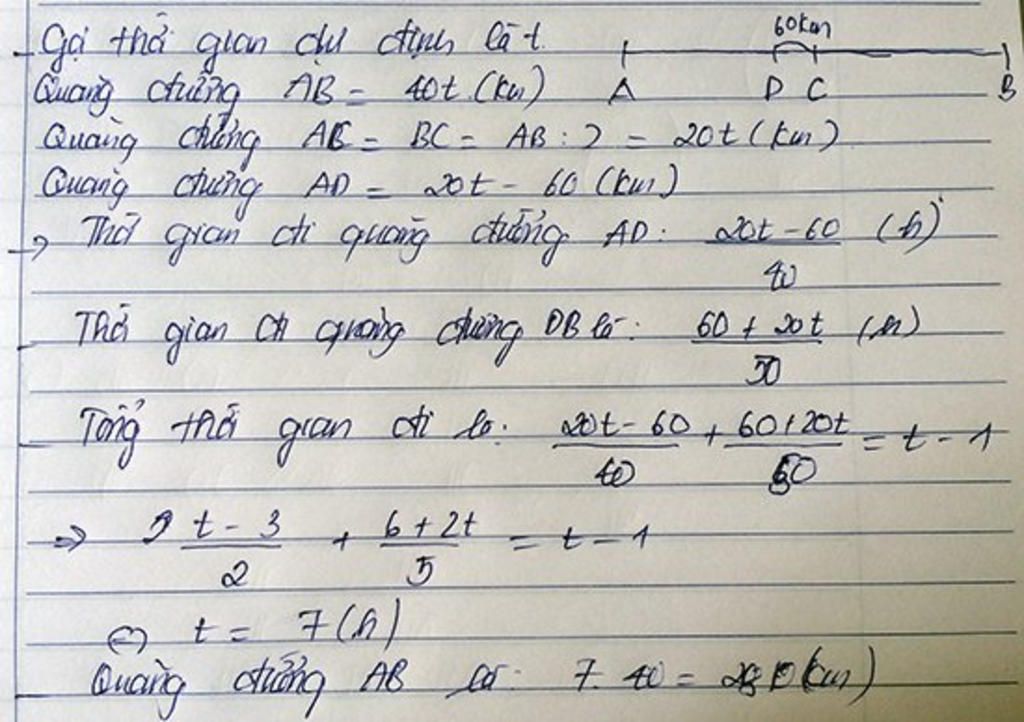 Gọi thời gian dự định là t.
60km
A D C B
Quãng đường AB = 40t (km)
Quãng đường AC = BC = AB : 2 = 20t (km)
Quãng đường AD = 20t - 60 (km)
→ Thời gian đi quãng đường AD: \frac{20t - 60}{40} (h)
Thời gian đi quãng đường DB là: \frac{60 + 20t}{50} (h)
Tổng thời gian đi là: \frac{20t - 60}{40} + \frac{60 + 20t}{50} = t - 1
=> \frac{t - 3}{2} + \frac{6 + 2t}{5} = t - 1
<=> t = 7 (h)
Quãng đường AB là: 7. 40 = 280 (km)